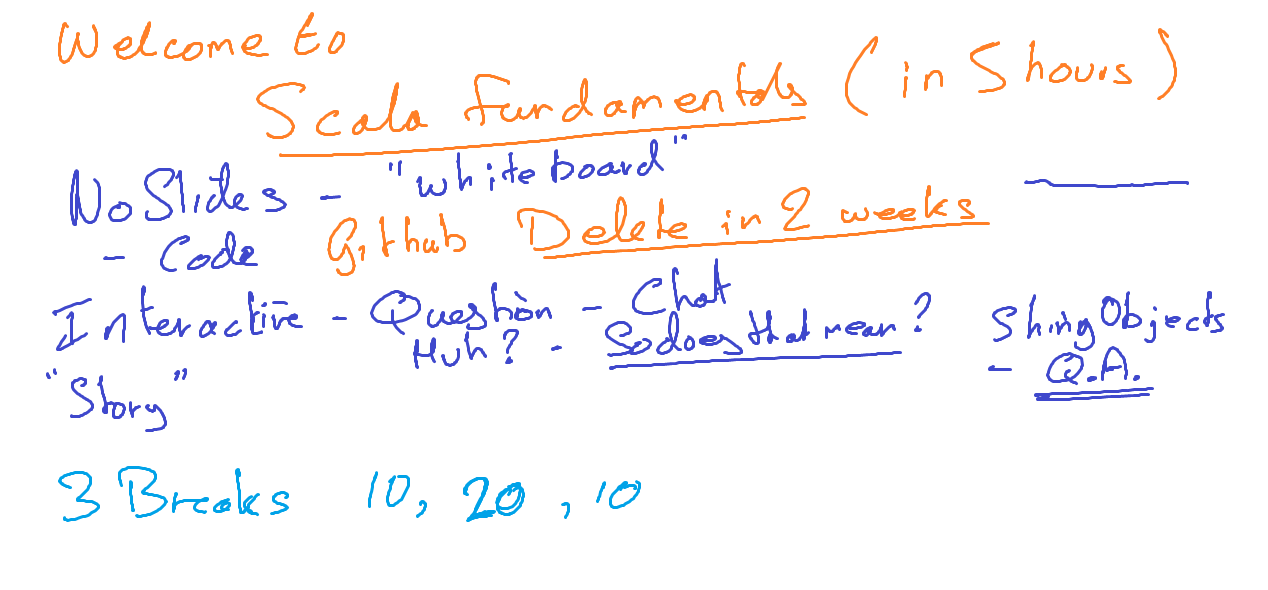 Welcome to
Scala Fundamentals (in 5 hours)
No Slides - "whiteboard"
- Code Github Delete in 2 weeks
Interactive - Question - Chat
Huh? - So does that mean?
Shiny Objects
- Q.A.
"Story"
3 Breaks 10, 20, 10